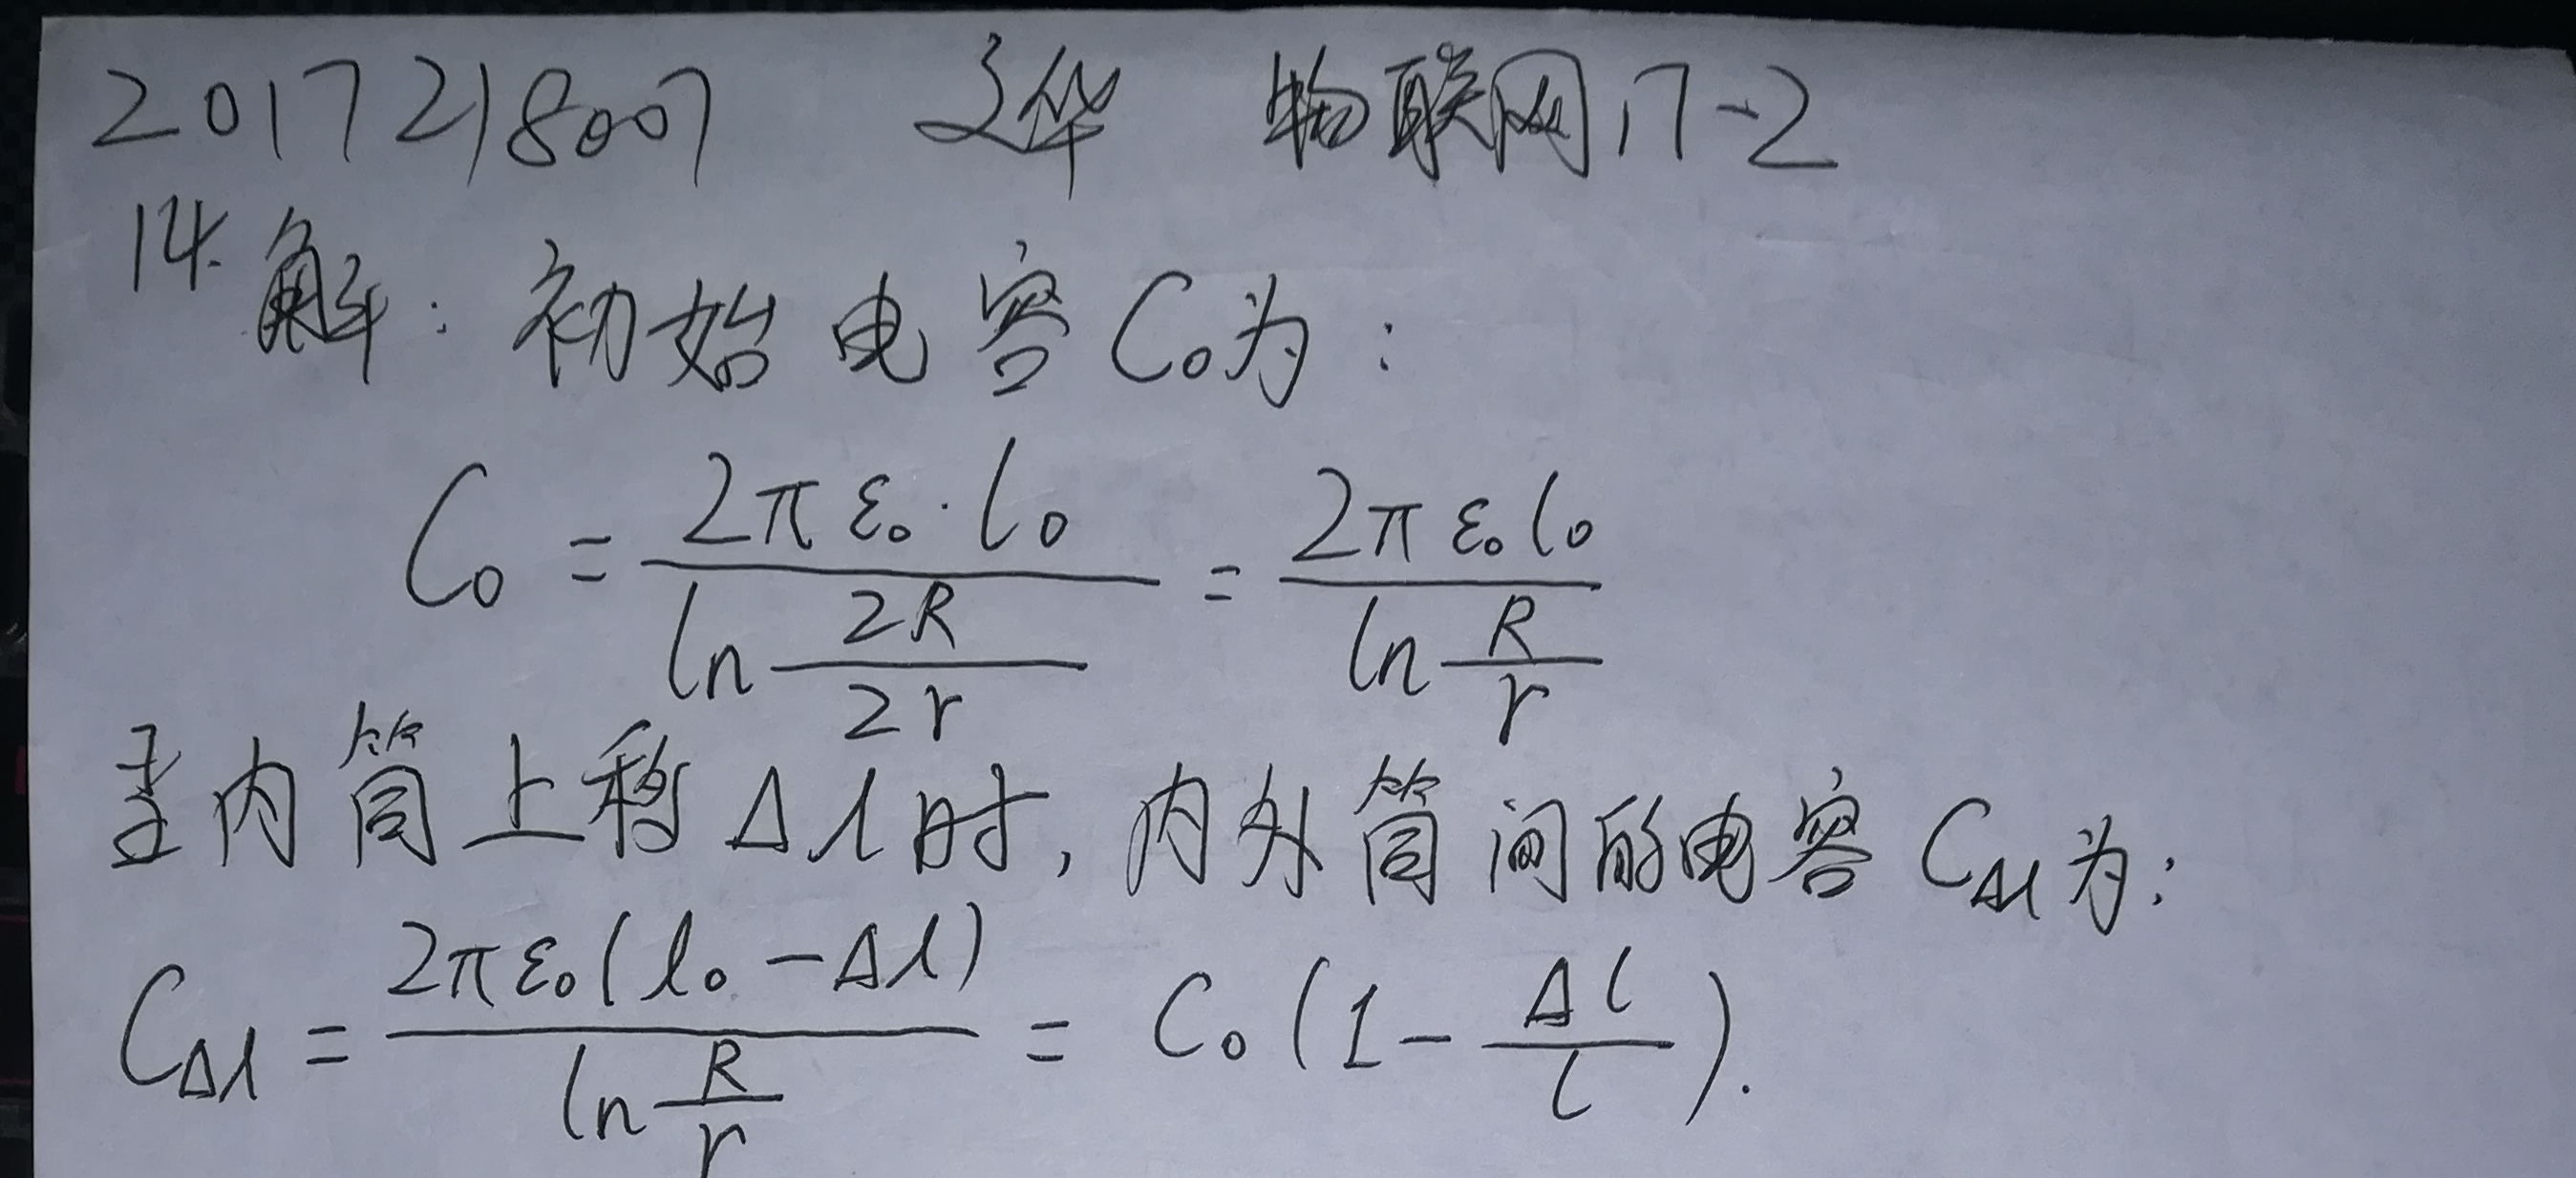 2017218007 文华 物联网17-2
14. 解: 初始电容C₀为:
C₀ = \frac{2π ε₀ · l₀}{ln \frac{2R}{2r}} = \frac{2π ε₀ l₀}{ln \frac{R}{r}}
内筒上移Δl时, 内外筒间的电容C_{Δl}为:
C_{Δl} = \frac{2π ε₀ (l₀ - Δl)}{ln \frac{R}{r}} = C₀ (1 - \frac{Δl}{l}).